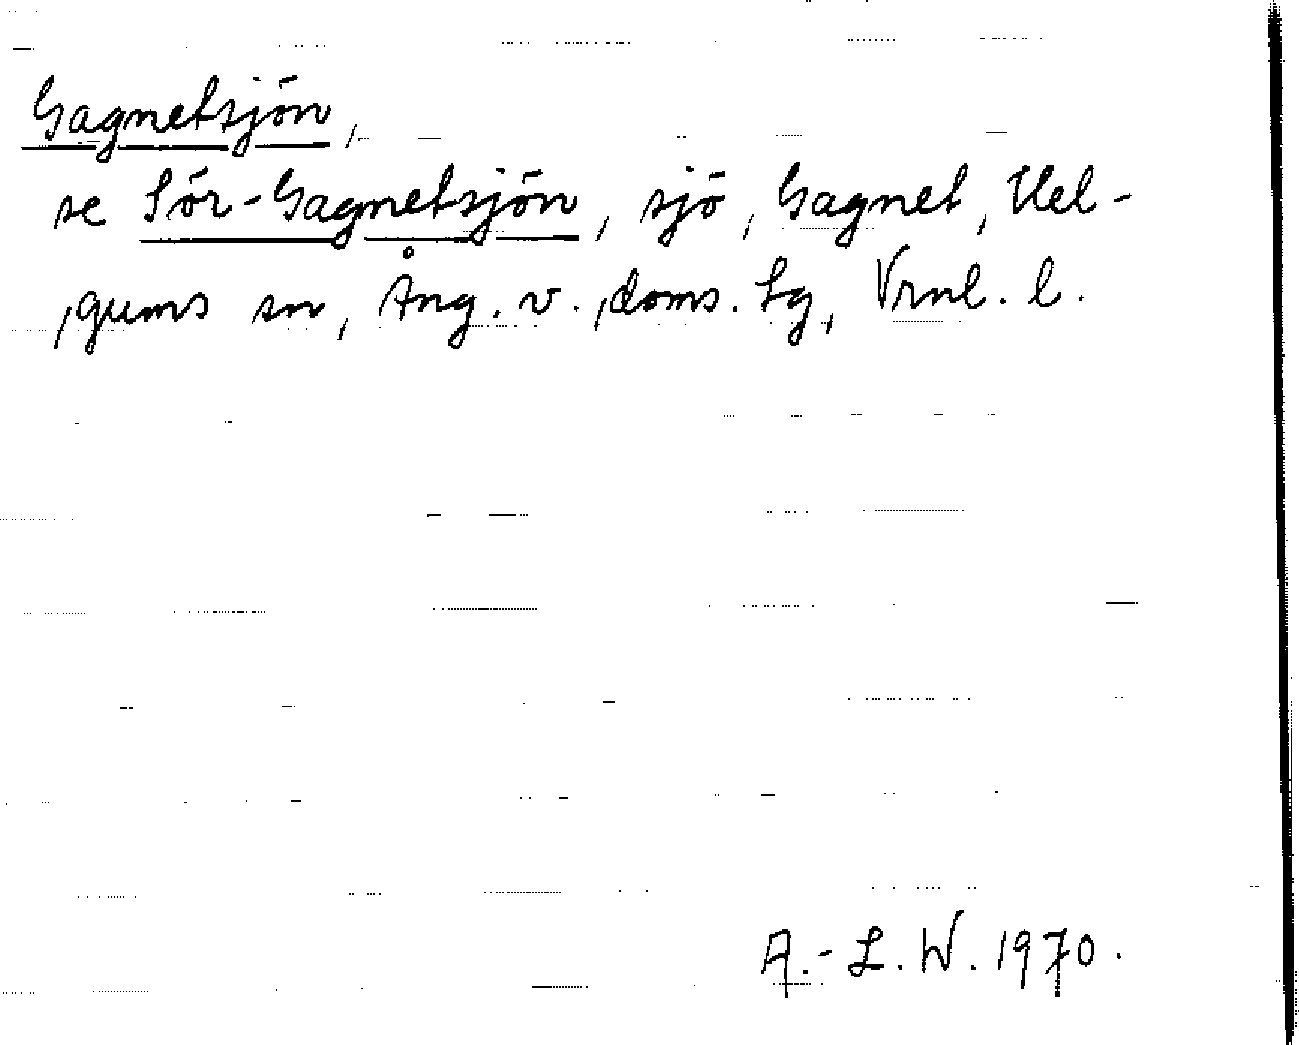 Gagnetsjön,
se Sör-Gagnetsjön, sjö, Gagnet, Hel-
gums sn, Ång. v. doms. tg, Vrnl. l.
A.-L. W. 1970.